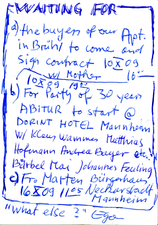 WAITING FOR
a) the buyers of our Apt.
in Brühl to come and
sign contract 10 X 09
w/ Mother 16°°
10 X 09 1927
b) For Party of 30 year
ABITUR to start @
DORINT HOTEL Mannheim
w/ Klaus Wammer Matthias
Hofmann Andrea Beyer etc.
Bärbel Mai Johannes Feuling
c) Fro Marten Bürgerhaus
16 X 09 11 05 Neckarstadt
Mannheim
"What else?" Ego